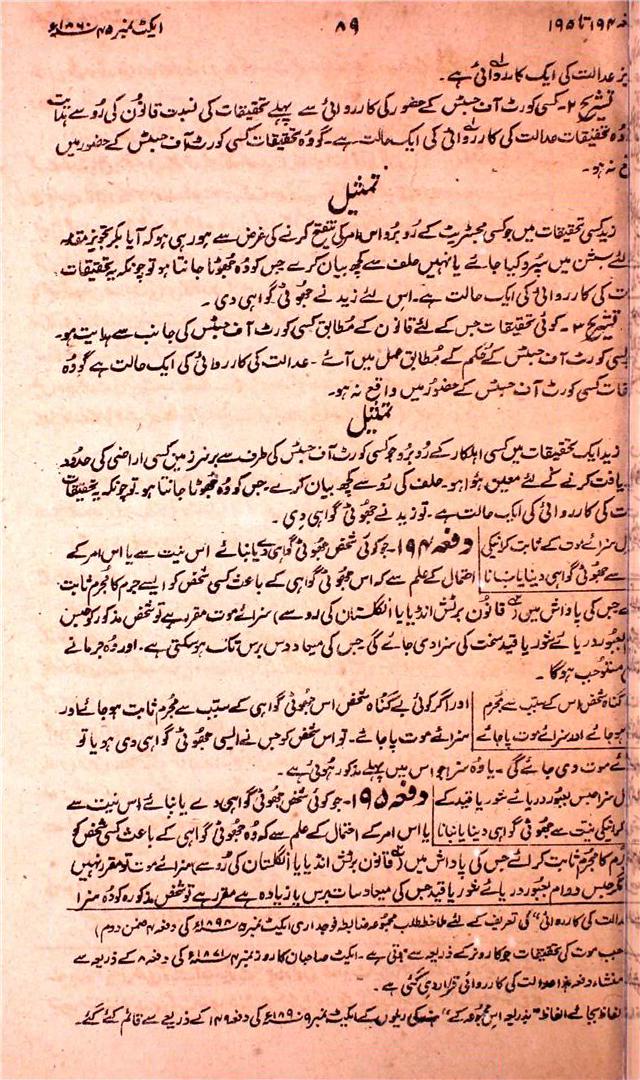 دفعہ ۱۹۴ تا ۱۹۵ ۸۹ ایکٹ نمبر ۴۵ ۱۸۶۰ء
عدالت کی ایک کارروائی ہے۔
تشریح ۲۔ کسی کورٹ آف جسٹس کے حضور کی کارروائی سے پہلے تحقیقات کی نسبت قانون کی رو سے ہدایت
وہ تحقیقات عدالت کی کارروائی کی ایک حالت ہے۔ گو وہ تحقیقات کسی کورٹ آف جسٹس کے حضور میں
نہ ہو۔
تمثیل
زید کسی تحقیقات میں جو کسی مجسٹریٹ کے روبرو اس امر کی تنقیح کرنے کی غرض سے ہو رہی ہو کہ آیا بکر تجویز مقدمہ
لئے سشن میں سپرد کیا جائے یا نہیں حلف سے کچھ بیان کرے جس کو وہ جھوٹا جانتا ہو تو چونکہ یہ تحقیقات
کی کارروائی کی ایک حالت ہے۔ اس لئے زید نے جھوٹی گواہی دی۔
تشریح ۳۔ کوئی تحقیقات جس کے لئے قانون کے مطابق کسی کورٹ آف جسٹس کی جانب سے ہدایت ہو۔
کسی کورٹ آف جسٹس کے حکم کے مطابق عمل میں آئے۔ عدالت کی کارروائی کی ایک حالت ہے گو وہ
کسی کورٹ آف جسٹس کے حضور میں واقع نہ ہو۔
تمثیل
زید ایک تحقیقات میں کسی اہلکار کے روبرو جو کسی کورٹ آف جسٹس کی طرف سے برسرزمین کسی اراضی کی حدود
دریافت کرنے کے لئے معین ہوا ہو۔ حلف کی رو سے کچھ بیان کرے۔ جس کو وہ جھوٹا جانتا ہو۔ تو چونکہ یہ تحقیقات
کی کارروائی کی ایک حالت ہے۔ تو زید نے جھوٹی گواہی دی۔
سزائے موت کے ثابت کرانیکی دفعہ ۱۹۴۔ جو کوئی شخص جھوٹی گواہی دے یا بنائے اس نیت سے یا اس امر کے
سے جھوٹی گواہی دینا یا بنانا احتمال کے علم سے کہ اس جھوٹی گواہی کے باعث کسی شخص کو ایسے جرم کا مجرم ثابت
جس کی پاداش میں (قانون برٹش انڈیا یا انگلستان کی رو سے) سزائے موت مقرر ہے تو شخص مذکور کو حبس
بعبور دریائے شور یا قید سخت کی سزا دی جائے گی جس کی میعاد دس برس تک ہو سکتی ہے۔ اور وہ جرمانے
مستوجب ہوگا۔
گناہ شخص اس کے سبب سے مجرم اور اگر کوئی بے گناہ شخص اس جھوٹی گواہی کے سبب سے مجرم ثابت ہو جائے اور
ہو جائے اور سزائے موت پا جائے سزائے موت پا جائے۔ تو اس شخص کو جس نے ایسی جھوٹی گواہی دی ہو یا تو
موت دی جائے گی۔ یا وہ سزا جو اس میں پہلے مذکور ہوئی ہے۔
سزا حبس بعبور دریائے شور یا قید کے دفعہ ۱۹۵۔ جو کوئی شخص جھوٹی گواہی دے یا بنائے اس نیت سے
کرانیکی نیت سے جھوٹی گواہی دینا یا بنانا یا اس امر کے احتمال کے علم سے کہ وہ جھوٹی گواہی کے باعث کسی شخص کو
جرم کا مجرم ثابت کرائے جس کی پاداش میں (قانون برٹش انڈیا یا انگلستان کی رو سے) سزائے موت تو مقرر نہیں
مگر حبس دوام بعبور دریائے شور یا قید جس کی میعاد سات برس یا زیادہ ہے مقرر ہے تو شخص مذکور کو وہ سزا
عدالت کی کارروائی" کی تعریف کے لئے ملاحظہ طلب مجموعہ ضابطہ فوجداری ایکٹ نمبر ۵ ۱۸۹۸ء کی دفعہ ۴ ضمن دوم)
موت کی تحقیقات جو کارونر کے ذریعہ سے ہوتی ہے۔ ایکٹ صاحبان کارونر نمبر ۴ ۱۸۷۱ء کی دفعہ ۸ کے ذریعہ سے
منشاء دفعہ ہذا عدالت کی کارروائی قرار دی گئی ہے۔
الفاظ بجائے الفاظ "بذریعہ اس مجموعہ کے" ہند کی ریلوں کے ایکٹ نمبر ۹ ۱۸۹۰ء کی دفعہ ۱۴۹ کے ذریعے سے قائم کئے گئے۔